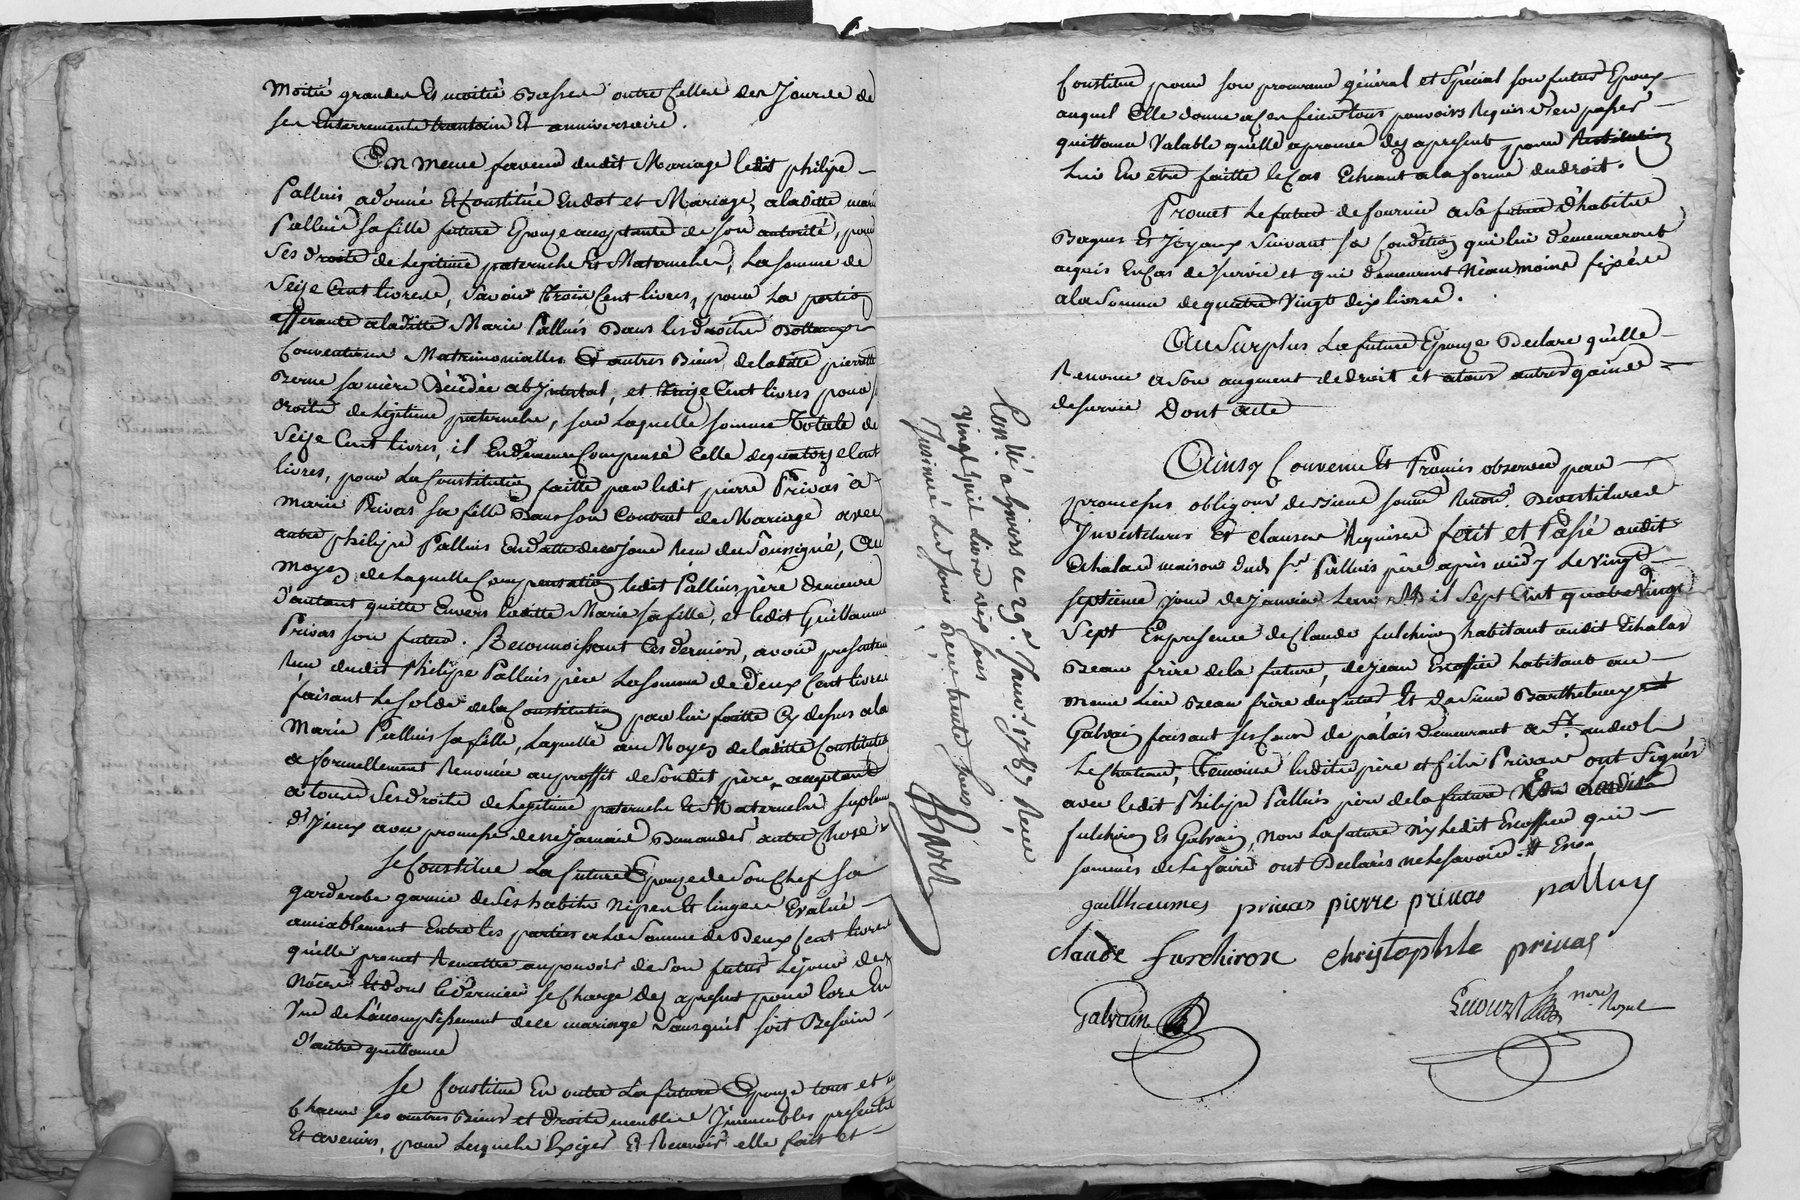 moitié grandes Et moitié Basses outre Celles des Jours de
ses Enterrements trantain Et anniversaire.
En meme faveur dudit Mariage ledit philipe
Palluis a donné Et Constitué En dot et Mariage, a laditte marie
Palluis sa fille future Epouze acceptante de son autorité, pour
ses droits de Legitime paternelle Et Maternelle, La somme de
seize Cent livres, savoir trois Cent livres, pour La portion
afferante a laditte Marie Palluis Dans les droits Dottaux
Conventions Matrimonialles Et autres Biens de laditte pierrette
Berne sa mère Décédée ab Intestat, et treize Cent livres pour
droits de Legitime paternelle, sur Laquelle somme Totale de
seize Cent livres, il En demeure Compensé Celle de quatorze Cent
livres, pour La Constitution faitte par ledit pierre Privas à
marie Privas sa fille Dans son Contrat de Mariage avec
autre philipe Palluis En datte de ce jour Reçu du soussigné, Au
moyen de Laquelle Compensation ledit Palluis père demeure
d'autant quitte Envers laditte Marie sa fille, et ledit Guillaume
Privas son futur. Reconnoissant Ces derniers, avoir presentement
Reçu dudit Philipe Palluis père La somme de Deux Cent livres
faisant Le solde de la Constitution par lui faitte Cy dessus a la
Marie Palluis sa fille, Laquelle au Moyen de laditte Constitution
a formellement Renoncée au proffit de sondit père, acceptant
a tous ses droits de Legitime paternelle Et Maternelle suplement
d'Iceux avec promesse de ne Jamais Demander autre Chose
se Constitue La future Epouze de son Chef sa
garderobe garnie de ses habits nipes Et linges Evalué
amiablement Entre les parties a la somme de Deux Cent livres
qu'elle promet Remettre au pouvoir de son futur le jour des
nôces Et dont le dernier se Charge des apresent pour lors En
Vue de L'accomplissement de ce mariage sans qu'il soit Besoin
d'autre quittance
se Constitue En outre La future Epouze tous et un
Chacun ses autres Biens et droits meubles Immeubles presents
Et avenirs, pour Lesquels Exiger Et Recevoir elle fait et
Constitue pour son procureur général et Spécial son futur Epoux
auquel Elle donne a ces fins tous pouvoirs Requis d'en passer
quittance Valable qu'elle aprouve des apresent pour Restitution
Lui En etre faitte le Cas Echeant a la forme du droit.
Promet Le futur de fournir a sa future d'habits
Bagues Et Joyaux suivant sa Condition qui lui demeureront
acquis En Cas de survie et qui demeurent Néanmoins fixés
a la somme de quatre Vingt dix livres.
Au surplus La future Epouze Declare qu'elle
Renonce a son augment de droit et a tous autres gains
de survie Dont acte
Ainsy Convenu Et Promis observer par
promesses obligaons de Biens soumons Renonns Devestitures
Investitures Et clauses Requises fait et Passé audit
Echalas maison dudt sr Palluis père après midy Le vingt
septieme jour de janvier L'an Mil sept Cent quatre Vingt
sept En presence de Claude fulchiron habitant audit Echalas
Beau frère de la future, de jean Escoffier habitant au
meme Lieu Beau frère du futur Et de sieur Barthelemy
Galvain faisant ses Cours de palais demeurant a St andeol
Le Chateau, Temoins lesdits père et fils Privas ont signés
avec ledit Philipe Palluis père de la future Et lesdits
fulchiron Et Galvain, non La future ny Ledit Escoffier qui
sommés de Le faire ont Declarés ne le savoir.
guillhaumes privas pierre privas palluy
claude furchiron christophle privas
Galvain
nore Royal
Conllé a givors ce 29e Janvr 1787 Reçu
vingt huit livres dix sous
Insinué Led jour Reçu trente sous